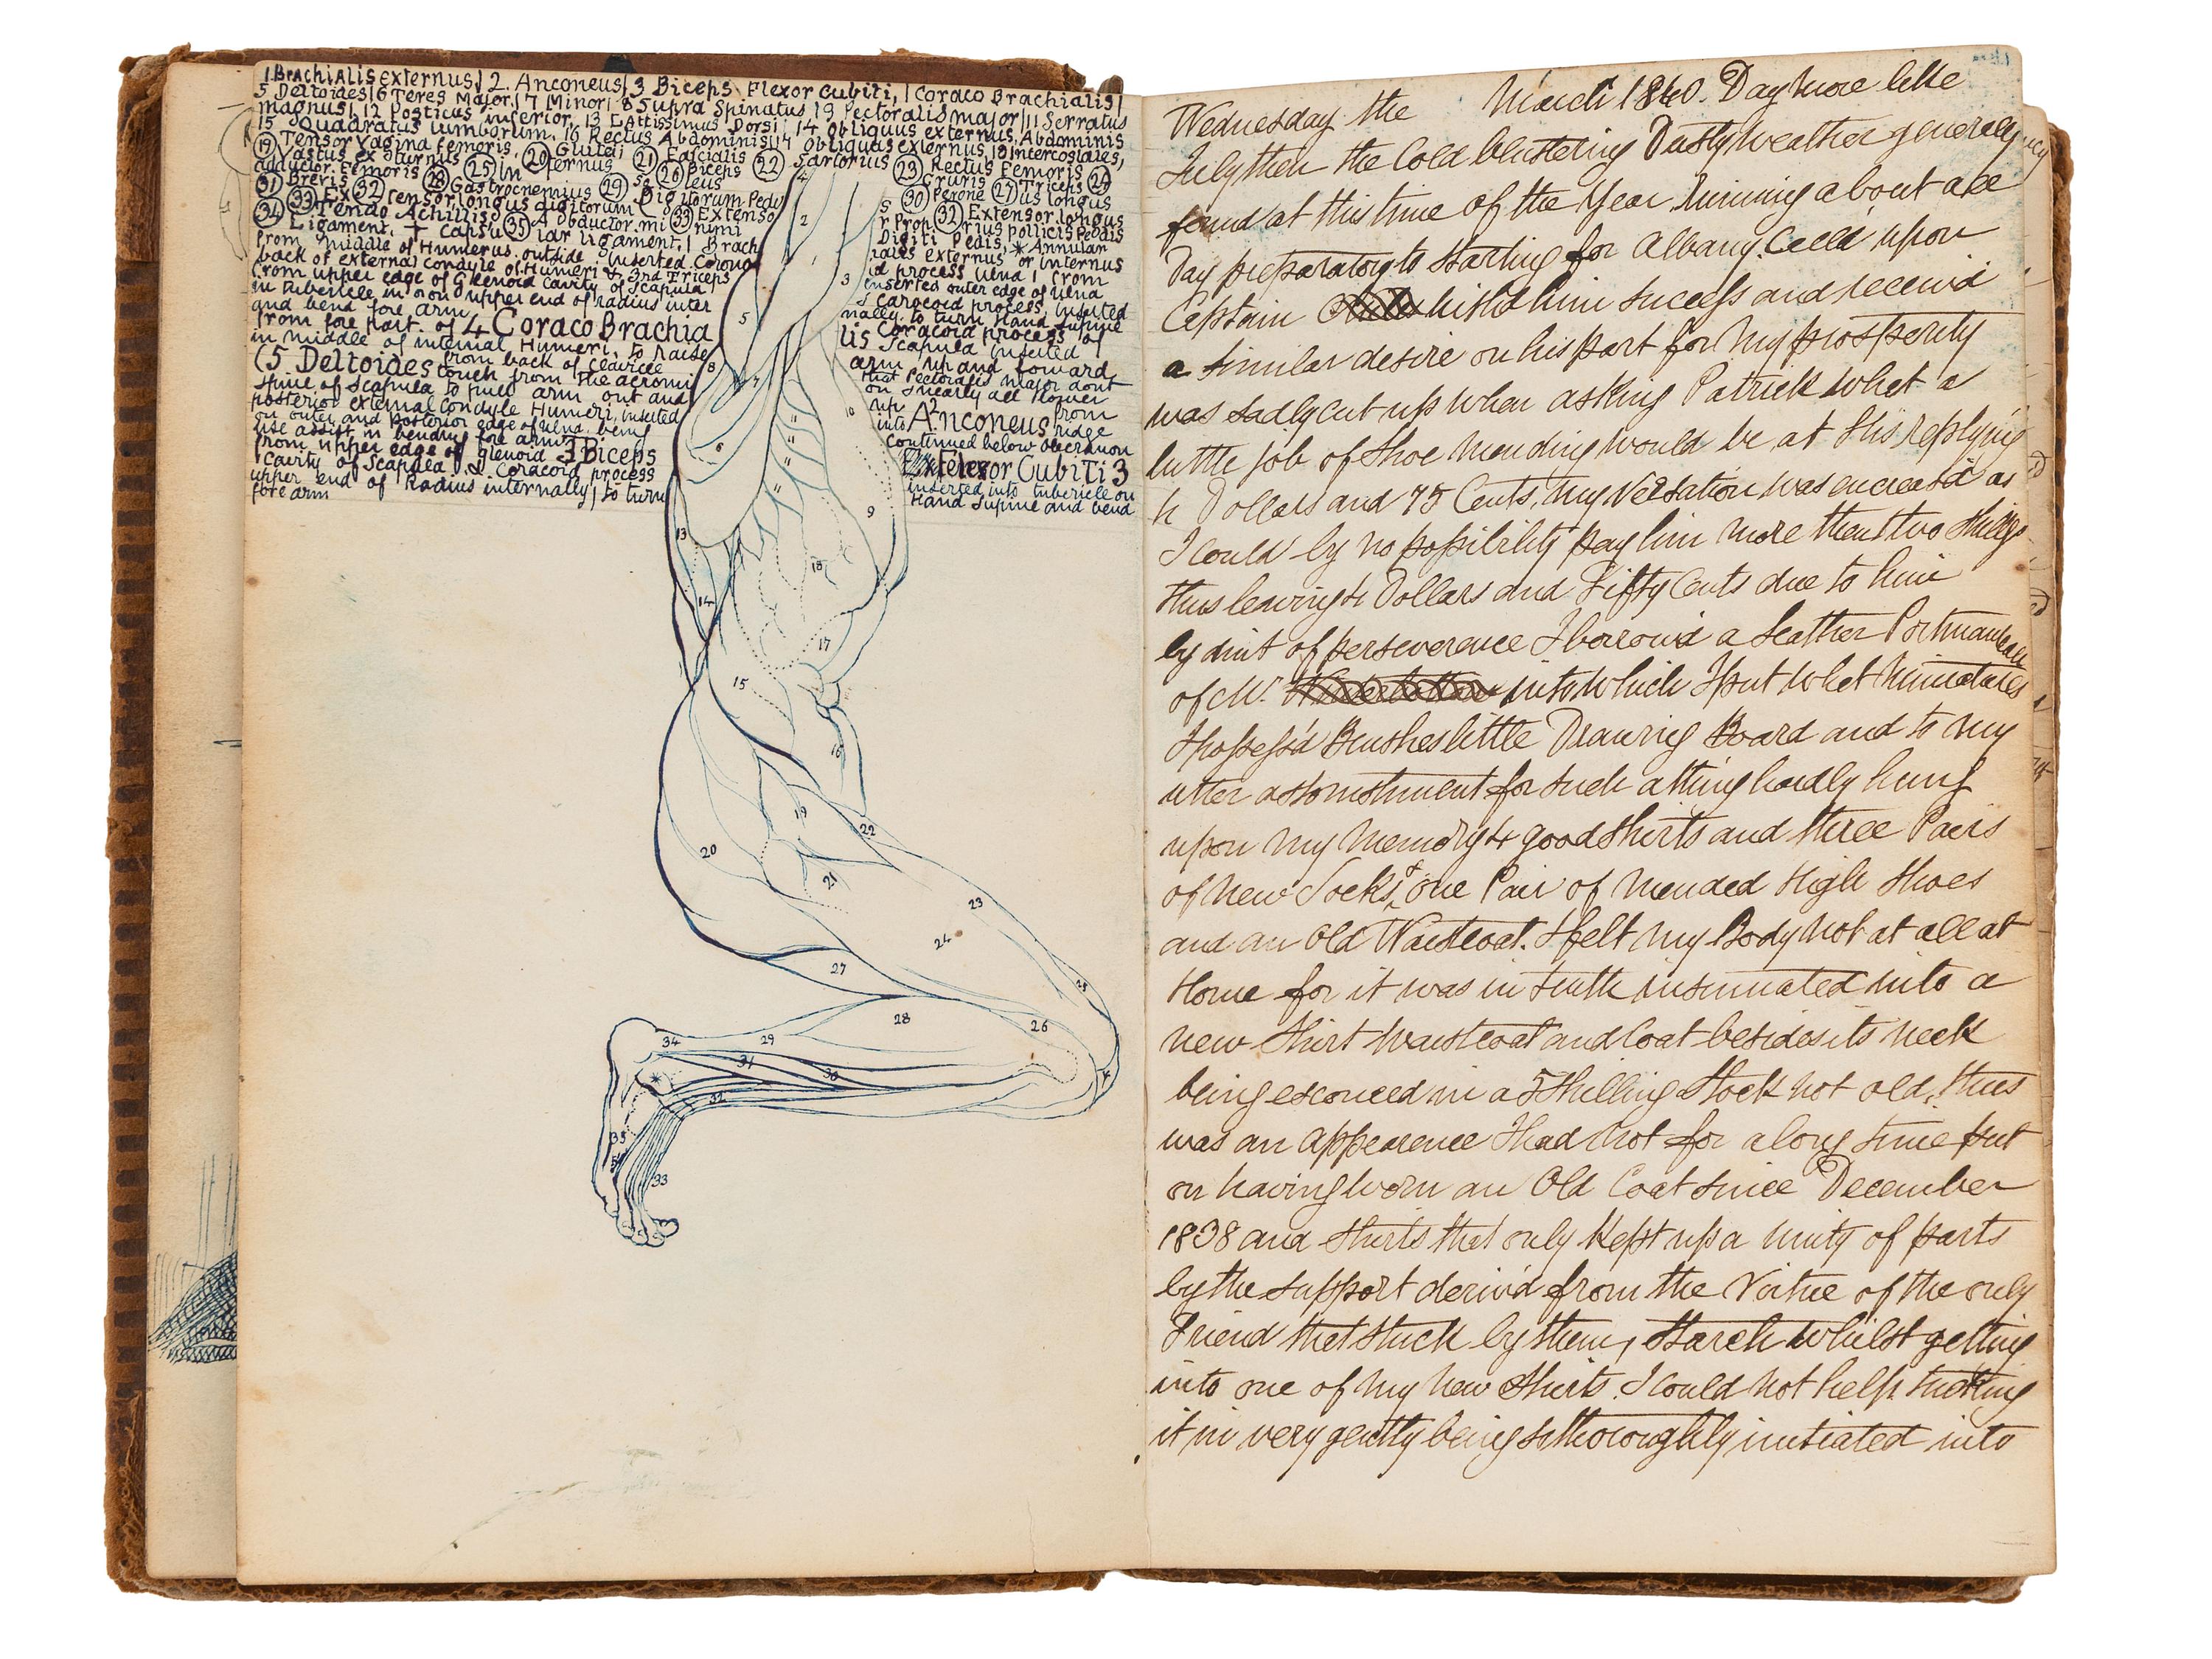 1 Brachialis externus | 2. Anconeus | 3 Biceps Flexor Cubiti, | Coraco Brachialis |
5 Deltoides | 6 Teres Major. | 7 Minor | 8 Supra Spinatus | 9 Pectoralis major | 11 Serratus
magnus |, 12 Posticus inferior, 13 Lattissimus Dorsi | 14 Obliquus externus. Abdominis
15 Quadratus lumborum. 16 Rectus Abdominis | 17 Obliquus externus 18 Intercostales,
19 Tensor Vagina femoris. 20 Glutei 21 Fascialis 22 Sartorius 23 Rectus Femoris 24
Vastus ex sturnus 25 in ternus 26 Biceps Cruris Triceps
adductor femoris 28 Gastrocnemius 29 Soleus 30 Perone 27 us longus
31 Brevis 32 Extensor longus digitorum Digitorum Pedis
33 Extensor Prop rius pollicis Pedis
34 Tendo Achillis 35 Abductor minimi Digiti Pedis, * Annular
Ligament. † Capsular ligament. | Brachialis externus or internus
from middle of Humerus. outside inserted Corono id process Ulna | from
back of external condyle of Humeri & 3rd Triceps inserted outer edge of Ulna
from upper edge of Glenoid Cavity of Scapula & Caracoid process, inserted
in tubercle in on upper end of radius internally. to turn hand supine
and bend fore arm
from fore part. of 4 Coraco Brachialis Coracoid process of Scapula inserted
in middle of internal Humeri, to raise arm up and forward
(5 Deltoides from back of clavicle touch from the acromi
spine of Scapula to pull arm out and up
posterior external Condyle Humeri, inserted into 2 Anconeus from ridge
on outer and posterior edge of Ulna. being continued below
use assist in bending fore arm 3 Biceps Flexor Cubiti 3
from upper edge of glenoid
cavity of Scapula & Coracoid process inserted into tubercle on
upper end of Radius internally, to turn Hand supine and bend
fore arm
2
3
5
8
7
6
10
11
11
11
11
9
13
18
14
17
15
16
19
22
20
21
23
24
27
25
28
26
34
29
31
30
*
32
35
33
Wednesday the March 1840. Day more like
July then the Cold blustering Dusty Weather generally
found at this time of the Year. Running about all
Day preparatory to starting for Albany. Calld upon
Captain wishd him success and receivd
a similar desire on his part for my prosperity
was sadly cut up when asking Patrick what a
little job of Shoe Mending would be at His replying
4 Dollars and 75 Cents, my vexation was encreasd as
I could by no possibility pay him more then two Shillgs
thus leaving 4 Dollars and Fifty Cents due to him
by dint of perseverence I borrowd a Leather Portmanteau
of Mr. into which I put what Miniatures
I possess'd Brushes little Drawing Board and to my
utter astonishment for such a thing hardly hung
upon my memory 4 good shirts and three Pairs
of new Socks, & one Pair of mended High Shoes
and an Old Waistcoat. I felt my Body not at all at
Home for it was in truth insinuated into a
new Shirt Waistcoat and Coat besides its neck
being esconced in a 5 Shilling Stock not old, this
was an appearence I had not for a long time put
on having worn an Old Coat since December
1838 and Shirts that only kept up a Unity of parts
by the support deriv'd from the Virtue of the only
Friend that stuck by them, Starch whilst getting
into one of my new Shirts. I could not help tucking
it in very gently being so thoroughly initiated into